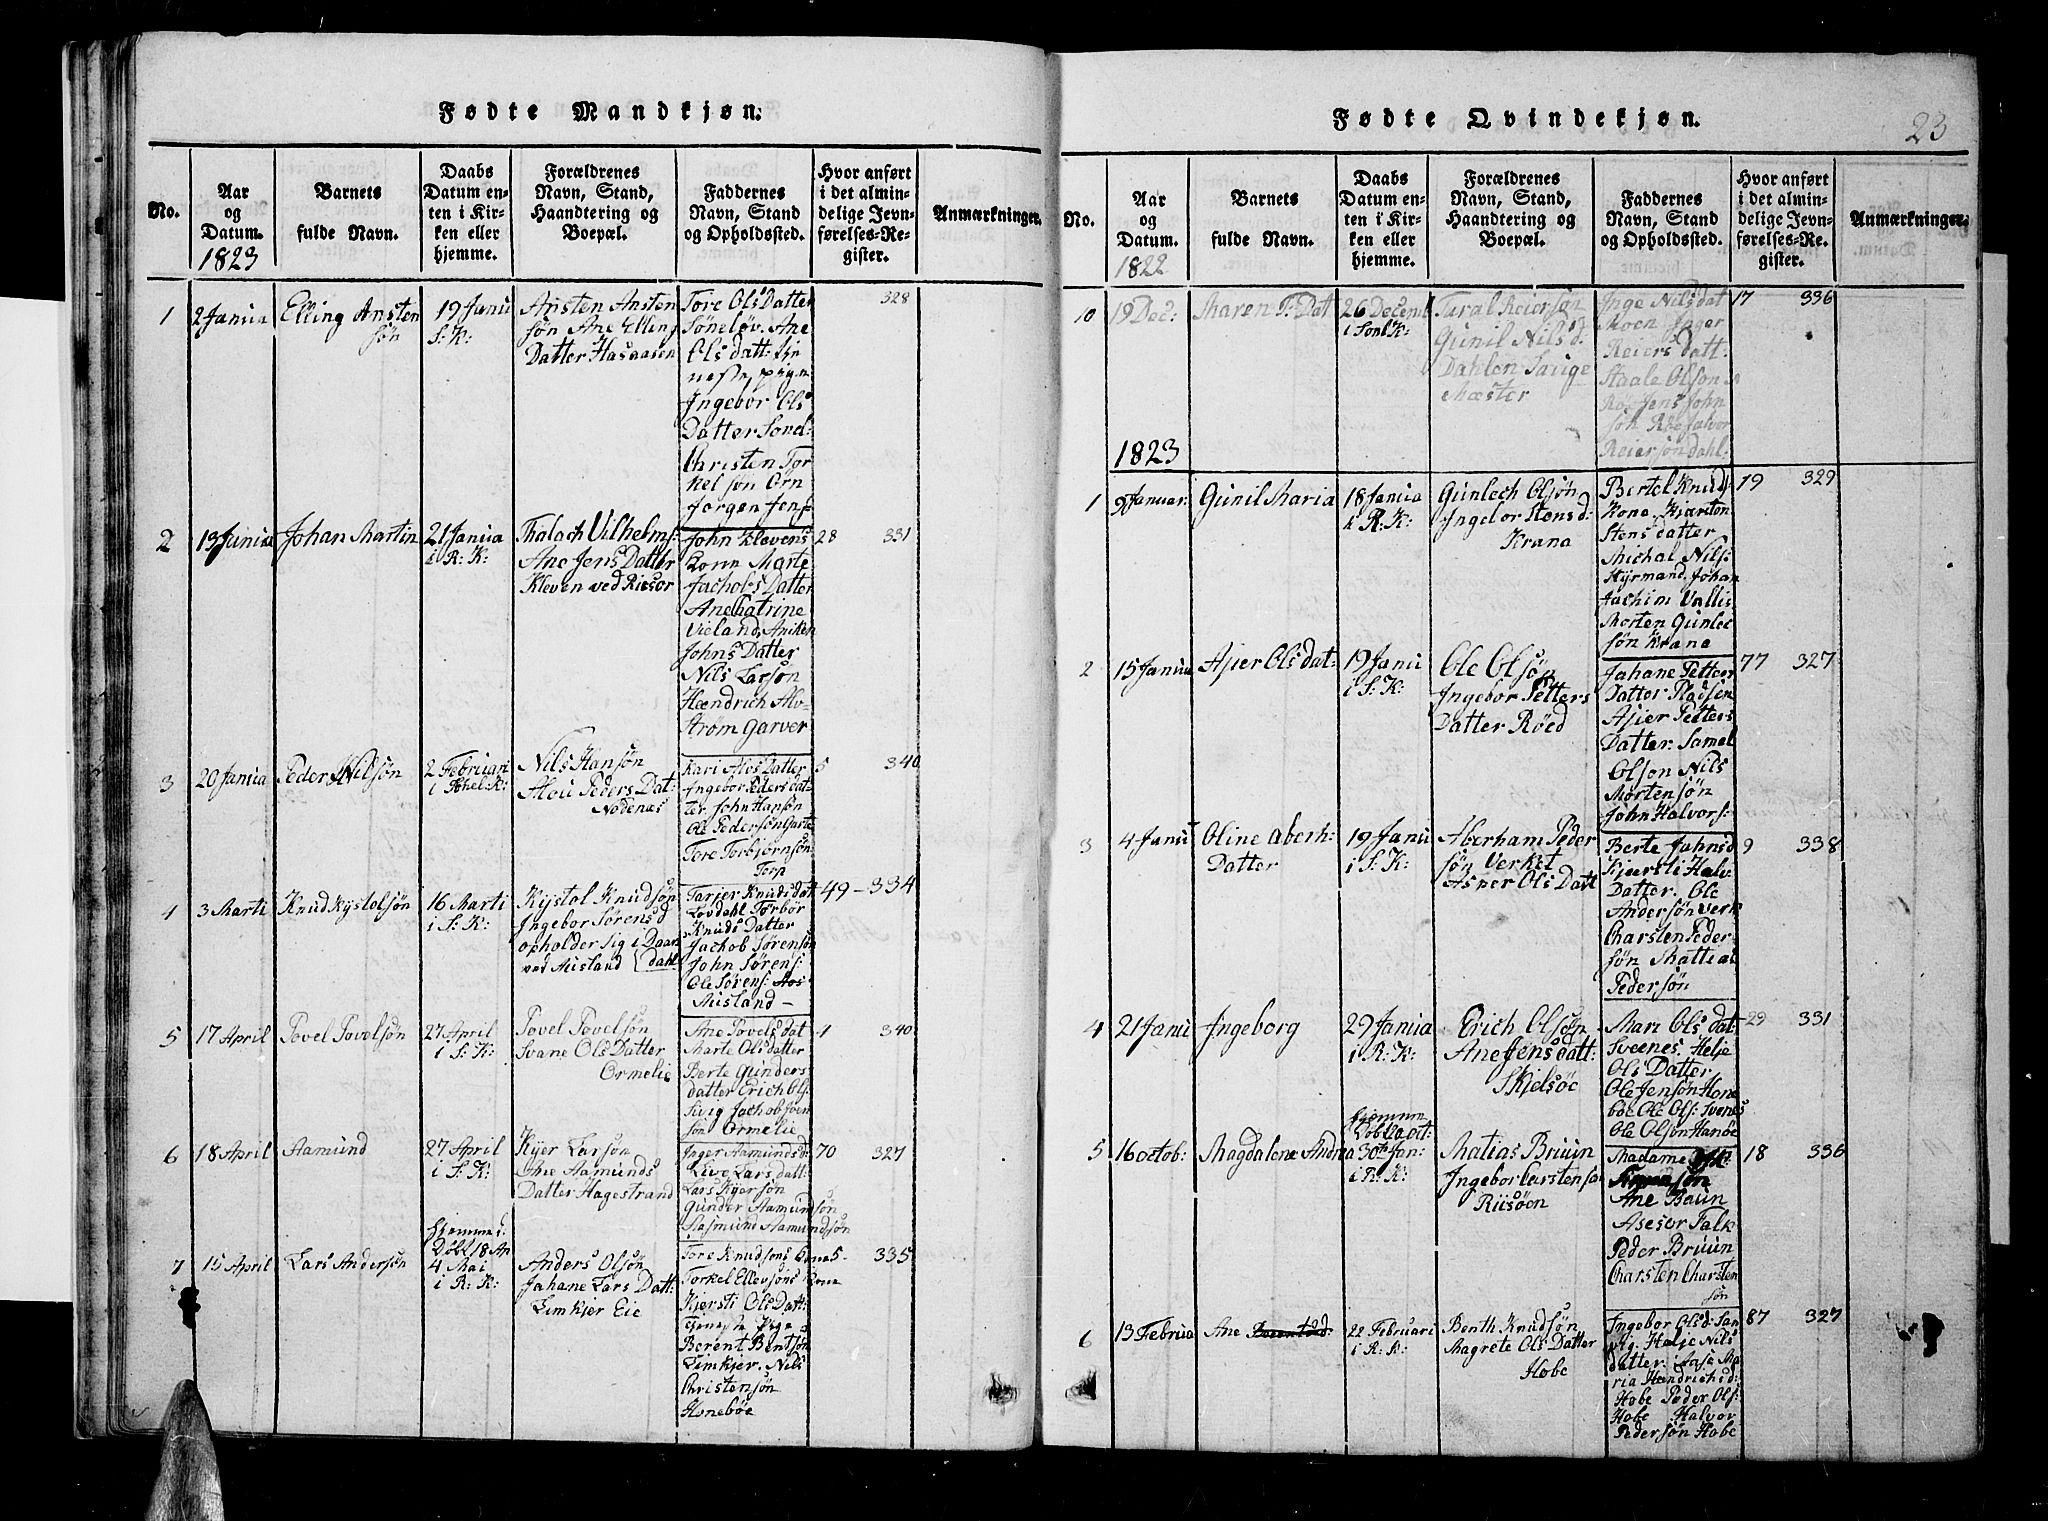 Fødte Mandkjøn.
No.
Aar
og
Datum.
1823
Barnets
fulde Navn.
Daabs
Datum en-
ten i Kir-
ken eller
hjemme.
Forældrenes
Navn, Stand,
Haandtering og
Boepæl.
Faddernes
Navn, Stand
og Opholdssted.
Hvor anført
i det almin-
delige Jevn-
førelses-Re-
gister.
Anmærkninger.
1
2 Janua
Elling Ansten
søn
19 Janu
S: K:
Ansten Ansten
søn Ane Elling
Datter Hasaasen
Tore Ols Datter
Søneløv. Ane
Ols datt:
Ingebor Ols
Datter Sond-
Christen Tor
kel søn Örn
Jorgen Jens
328
2
13 Janua
Johan Martin
21 Janua
i R: K:
Vilhelms:
Ane Jens Datter
Kleven ved Riisør
John Klevens
Kone Marte
Jachobs Datter
Ane Catrine
Vieland, Aniken
Johns Datter
Nils Larsøn
Hændrich Alv-
strøm Garver
28
331
3
20 Janua
Peder Nilsøn
2 Februari
i K:
Nils Hansøn
Peders Dat:
Nodenæs
Kari Datter
Ingebor Peders dat-
ter John Hansøn
Ole Pedersøn Garte
Tore Torbjørnsøn
Torp
5
340
4
3 Marti
Knud Kystolsøn
16 Marti
i S: K:
Kystol Knudsøn
Ingebor Sørens d
opholder sig i Daar
ved Ausland dahl
Tarjer Knuds dat
Lovdahl Torbor
Knuds Datter
Jachob Sørensøn
John Sørens:
Ole Sørens:
Ausland -
49 - 334
5
17 April
Povel Povelsøn
27 April
i S: K:
Povel Povelsøn
Svane Ols Datter
Ormelie
Ane Povels dat
Marte Ols datter
Berte Gunders
datter Erich Ols
Sivig Jachob Sven
søn Ormelie
1
340
6
18 April
Aamund
27 April
i S: K:
Kyer Larsøn
Ane Aamunds
Datter Hagestrand
Inger Aamunds d:
Live Lars datt:
Lars Kyersøn
Gunder Aamundsøn
Rasmund Aamundsøn
70
327
7
15 April
Lars Andersøn
Hjemme
Döbt 18 Ap
4 Mai
i R: K:
Anders Olsøn
Jahane Lars Datt:
Limkjer Eie
Tore Knudsøns Kone
Torkel Ellevsøns Kone
Kjersti Ols Datt:
Tieneste Pige
Berent Bentsøn
Limkjer. Nils
Christensøn
Honebøe
5 -
335
Fødte Qvindekjøn.
23
No.
Aar
og
Datum.
1822
Barnets
fulde Navn.
Daabs
Datum en-
ten i Kir-
ken eller
hjemme.
Forældrenes
Navn, Stand,
Haandtering og
Boepæl.
Faddernes
Navn, Stand
og Opholdssted.
Hvor anført
i det almin-
delige Jevn-
førelses-Re-
gister.
Anmærkninger.
10
19 Dec:
Maren T: Dat
26 Decemb
i Sønl K:
Taral Reiersøn
Gunil Nils d:
Dahlen Sauge
Mæster
Inge Nils dat
Moen Inger
Reiers datt:
Staale Olson
Jens John
søn Røe Salvor
Reiersøn dahl:
17
336
1823
1
9 Januar:
Gunil Maria
18 Janua
i R: K:
Gunlech Olsøn
Ingebor Stens d:
Krana
Bertel Knud
Kone Kjersten
Stens datter
Michal Nils:
Styrmand, Johan
Jachim Vallis
Morten Gunlec
søn Krane
19
329
2
15 Janua
Ajier Ols dat:
19 Janu
i S: K:
Ole Olsøn
Ingebor Petters
Datter Røed
Jahane Petter
Datter Pladsen
Ajier Petters
Datter. Samel
Olsøn Nils
Mortensøn
John Halvors:
77
327
3
4 Janu
Oline Aberh:
Datter
19 Janu
i S: K:
Aberham Peder
søn Verket
Asper Ols Datt
Berte Jahns d
Kjersti Halv
Datter. Ole
Andersøn verk
Charsten Peder
søn Mattias
Pedersøn
9
338
4
21 Janu
Ingeborg
29 Janua
i R: K:
Erich Olsøn
Ane Jens datt:
Skjelsøe
Mari Ols dat
Sveenes. Helje
Ols Datter
Ole Jensøn Hone
böe Ole Ols: Svenes
Ole Olsøn Hanöe
29
331
5
16 octob:
Magdalene Andrea
Hjemme
Döbt oct:
30 Jan:
i R: K:
Matias Bruun
Ingebor Carstensø
Riisöen
Madame
Ane Baun
Asesor Falk
Peder Bruun
Charsten Charsten
søn
18
336
6
13 Februa
Ane
22 Februari
i R: K:
Benth Knudsøn
Magrete Ols Datter
Hobe
Ingebor Ols d: San
vig. Helje Nils
Datter. Aase Ma
ria Hendrichs d:
Hobe Peder Ols:
Hobe Halvor
Pedersøn Hobe
87
327